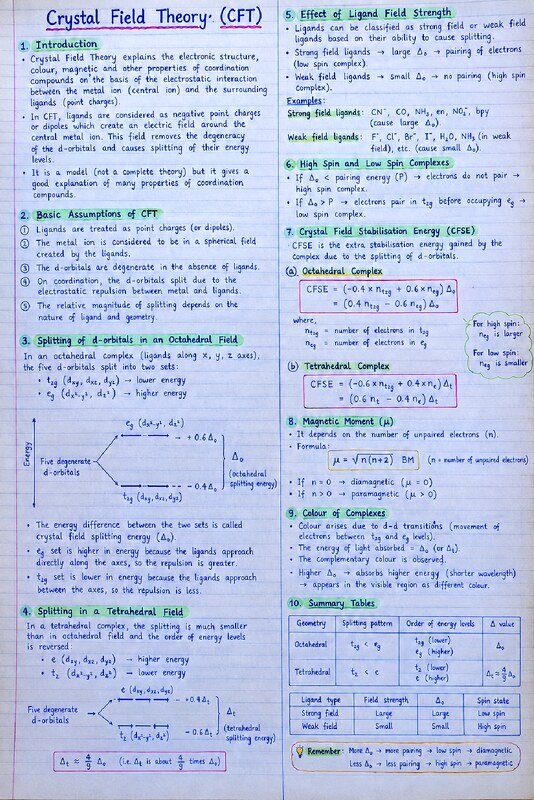 Crystal Field Theory (CFT)
1. Introduction
• Crystal Field Theory explains the electronic structure,
colour, magnetic and other properties of coordination
compounds on the basis of the electrostatic interaction
between the metal ion (central ion) and the surrounding
ligands (point charges).
• In CFT, ligands are considered as negative point charges
or dipoles which create an electric field around the
central metal ion. This field removes the degeneracy
of the d-orbitals and causes splitting of their energy
levels.
• It is a model (not a complete theory) but it gives a
good explanation of many properties of coordination
compounds.
2. Basic Assumptions of CFT
① Ligands are treated as point charges (or dipoles).
② The metal ion is considered to be in a spherical field
created by the ligands.
③ The d-orbitals are degenerate in the absence of ligands.
④ On coordination, the d-orbitals split due to the
electrostatic repulsion between metal and ligands.
⑤ The relative magnitude of splitting depends on the
nature of ligand and geometry.
3. Splitting of d-orbitals in an Octahedral Field
In an octahedral complex (ligands along x, y, z axes),
the five d-orbitals split into two sets:
• t₂g (dxy, dxz, dyz) → lower energy
• eg (dx²-y², dz²) → higher energy
Energy
eg (dx²-y², dz²)
+0.6Δ₀
Five degenerate
d-orbitals
Δ₀
(octahedral
splitting energy)
-0.4Δ₀
t₂g (dxy, dxz, dyz)
• The energy difference between the two sets is called
crystal field splitting energy (Δ₀).
• eg set is higher in energy because the ligands approach
directly along the axes, so the repulsion is greater.
• t₂g set is lower in energy because the ligands approach
between the axes, so the repulsion is less.
4. Splitting in a Tetrahedral Field
In a tetrahedral complex, the splitting is much smaller
than in octahedral field and the order of energy levels
is reversed:
• e (dxy, dxz, dyz) → higher energy
• t₂ (dx²-y², dz²) → lower energy
e (dxy, dxz, dyz)
+0.4Δt
Five degenerate
d-orbitals
Δt
(tetrahedral
splitting energy)
-0.6Δt
t₂ (dx²-y², dz²)
Δt ≈ 4/9 Δ₀ (i.e. Δt is about 4/9 times Δ₀)
5. Effect of Ligand Field Strength
• Ligands can be classified as strong field or weak field
ligands based on their ability to cause splitting.
• Strong field ligands → large Δ₀ → pairing of electrons
(low spin complex).
• Weak field ligands → small Δ₀ → no pairing (high spin
complex).
Examples:
Strong field ligands: CN⁻, CO, NH₃, en, NO₂⁻, bpy
(cause large Δ₀).
Weak field ligands: F⁻, Cl⁻, Br⁻, I⁻, H₂O, NH₃ (in weak
field), etc. (cause small Δ₀).
6. High Spin and Low Spin Complexes
• If Δ₀ < pairing energy (P) → electrons do not pair →
high spin complex.
• If Δ₀ > P → electrons pair in t₂g before occupying eg →
low spin complex.
7. Crystal Field Stabilisation Energy (CFSE)
CFSE is the extra stabilisation energy gained by the
complex due to the splitting of d-orbitals.
(a) Octahedral Complex
CFSE = (-0.4 × nt₂g + 0.6 × neg) Δ₀
= (0.4 nt₂g - 0.6 neg) Δ₀
where,
nt₂g = number of electrons in t₂g
neg = number of electrons in eg
For high spin:
neg is larger
For low spin:
neg is smaller
(b) Tetrahedral Complex
CFSE = (-0.6 × nt₂ + 0.4 × ne) Δt
= (0.6 nt - 0.4 ne) Δt
8. Magnetic Moment (μ)
• It depends on the number of unpaired electrons (n).
• Formula:
μ = √n(n+2) BM (n = number of unpaired electrons)
• If n = 0 → diamagnetic (μ = 0)
• If n > 0 → paramagnetic (μ > 0)
9. Colour of Complexes
• Colour arises due to d-d transitions (movement of
electrons between t₂g and eg levels).
• The energy of light absorbed = Δ₀ (or Δt).
• The complementary colour is observed.
• Higher Δ₀ → absorbs higher energy (shorter wavelength)
→ appears in the visible region as different colour.
10. Summary Tables
Geometry Splitting pattern Order of energy levels Δ value
Octahedral t₂g < eg t₂g (lower) eg (higher) Δ₀
Tetrahedral t₂ < e t₂ (lower) e (higher) Δt ≈ 4/9 Δ₀
Ligand type Field strength Δ₀ Spin state
Strong field Large Large Low spin
Weak field Small Small High spin
Remember: More Δ₀ → more pairing → low spin → diamagnetic
Less Δ₀ → less pairing → high spin → paramagnetic